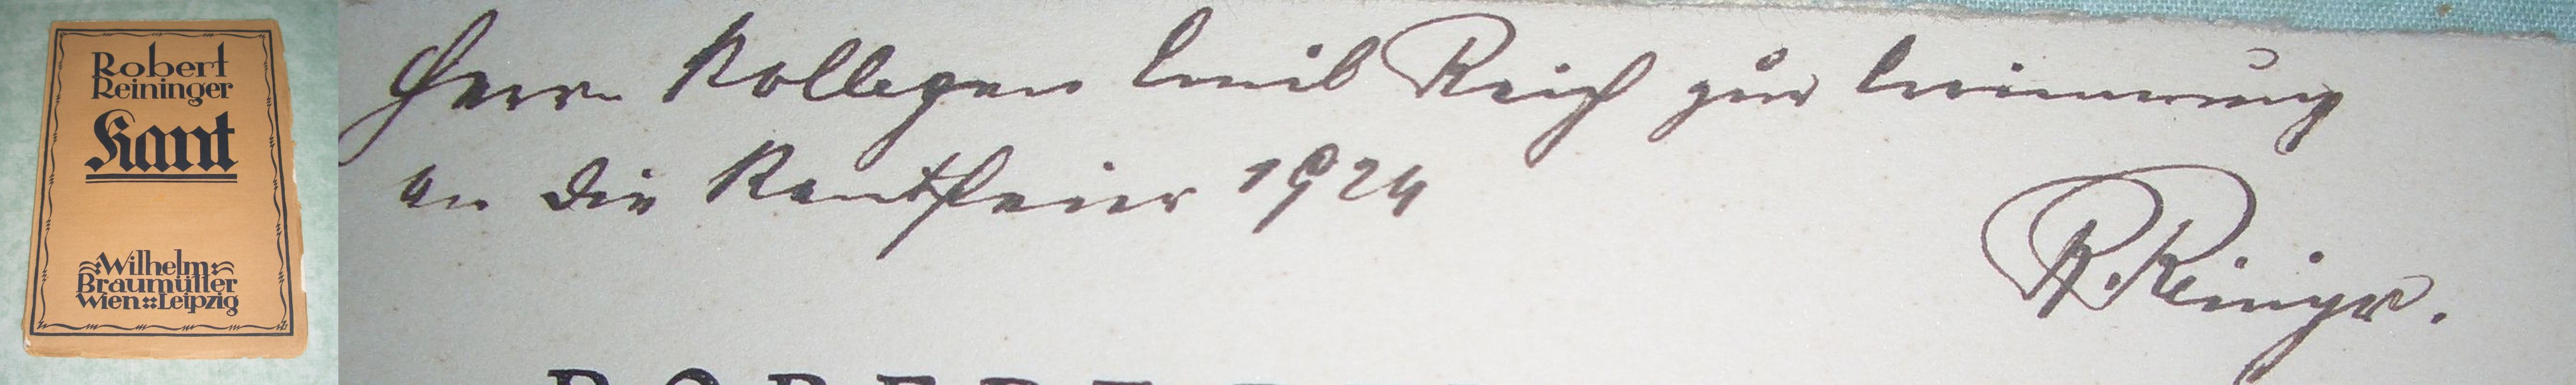 Robert
Reininger
Kant
Wilhelm
Braumüller
Wien Leipzig
Herrn Kollegen Emil Reich zur Erinnerung
an die Kantfeier 1924
R. Reininger.